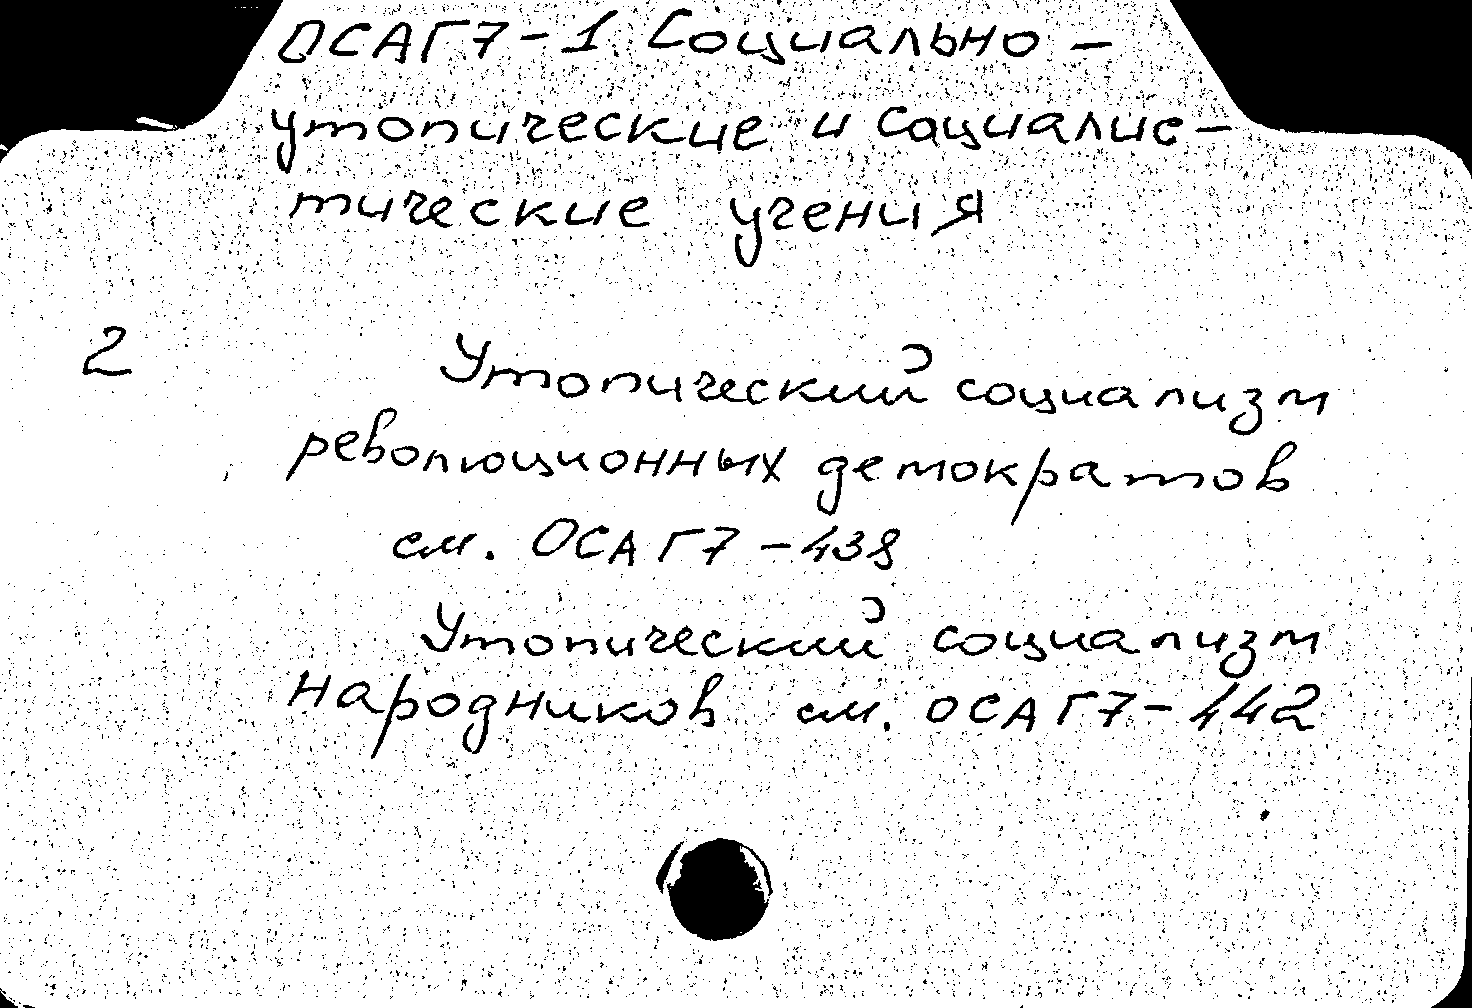 ОСАГ7-1 Социально-
утопические и социалис-
тические учения
2 Утопический социализм
революционных демократов
см. ОСАГ7-438
Утопический социализм
народников см. ОСАГ7-442